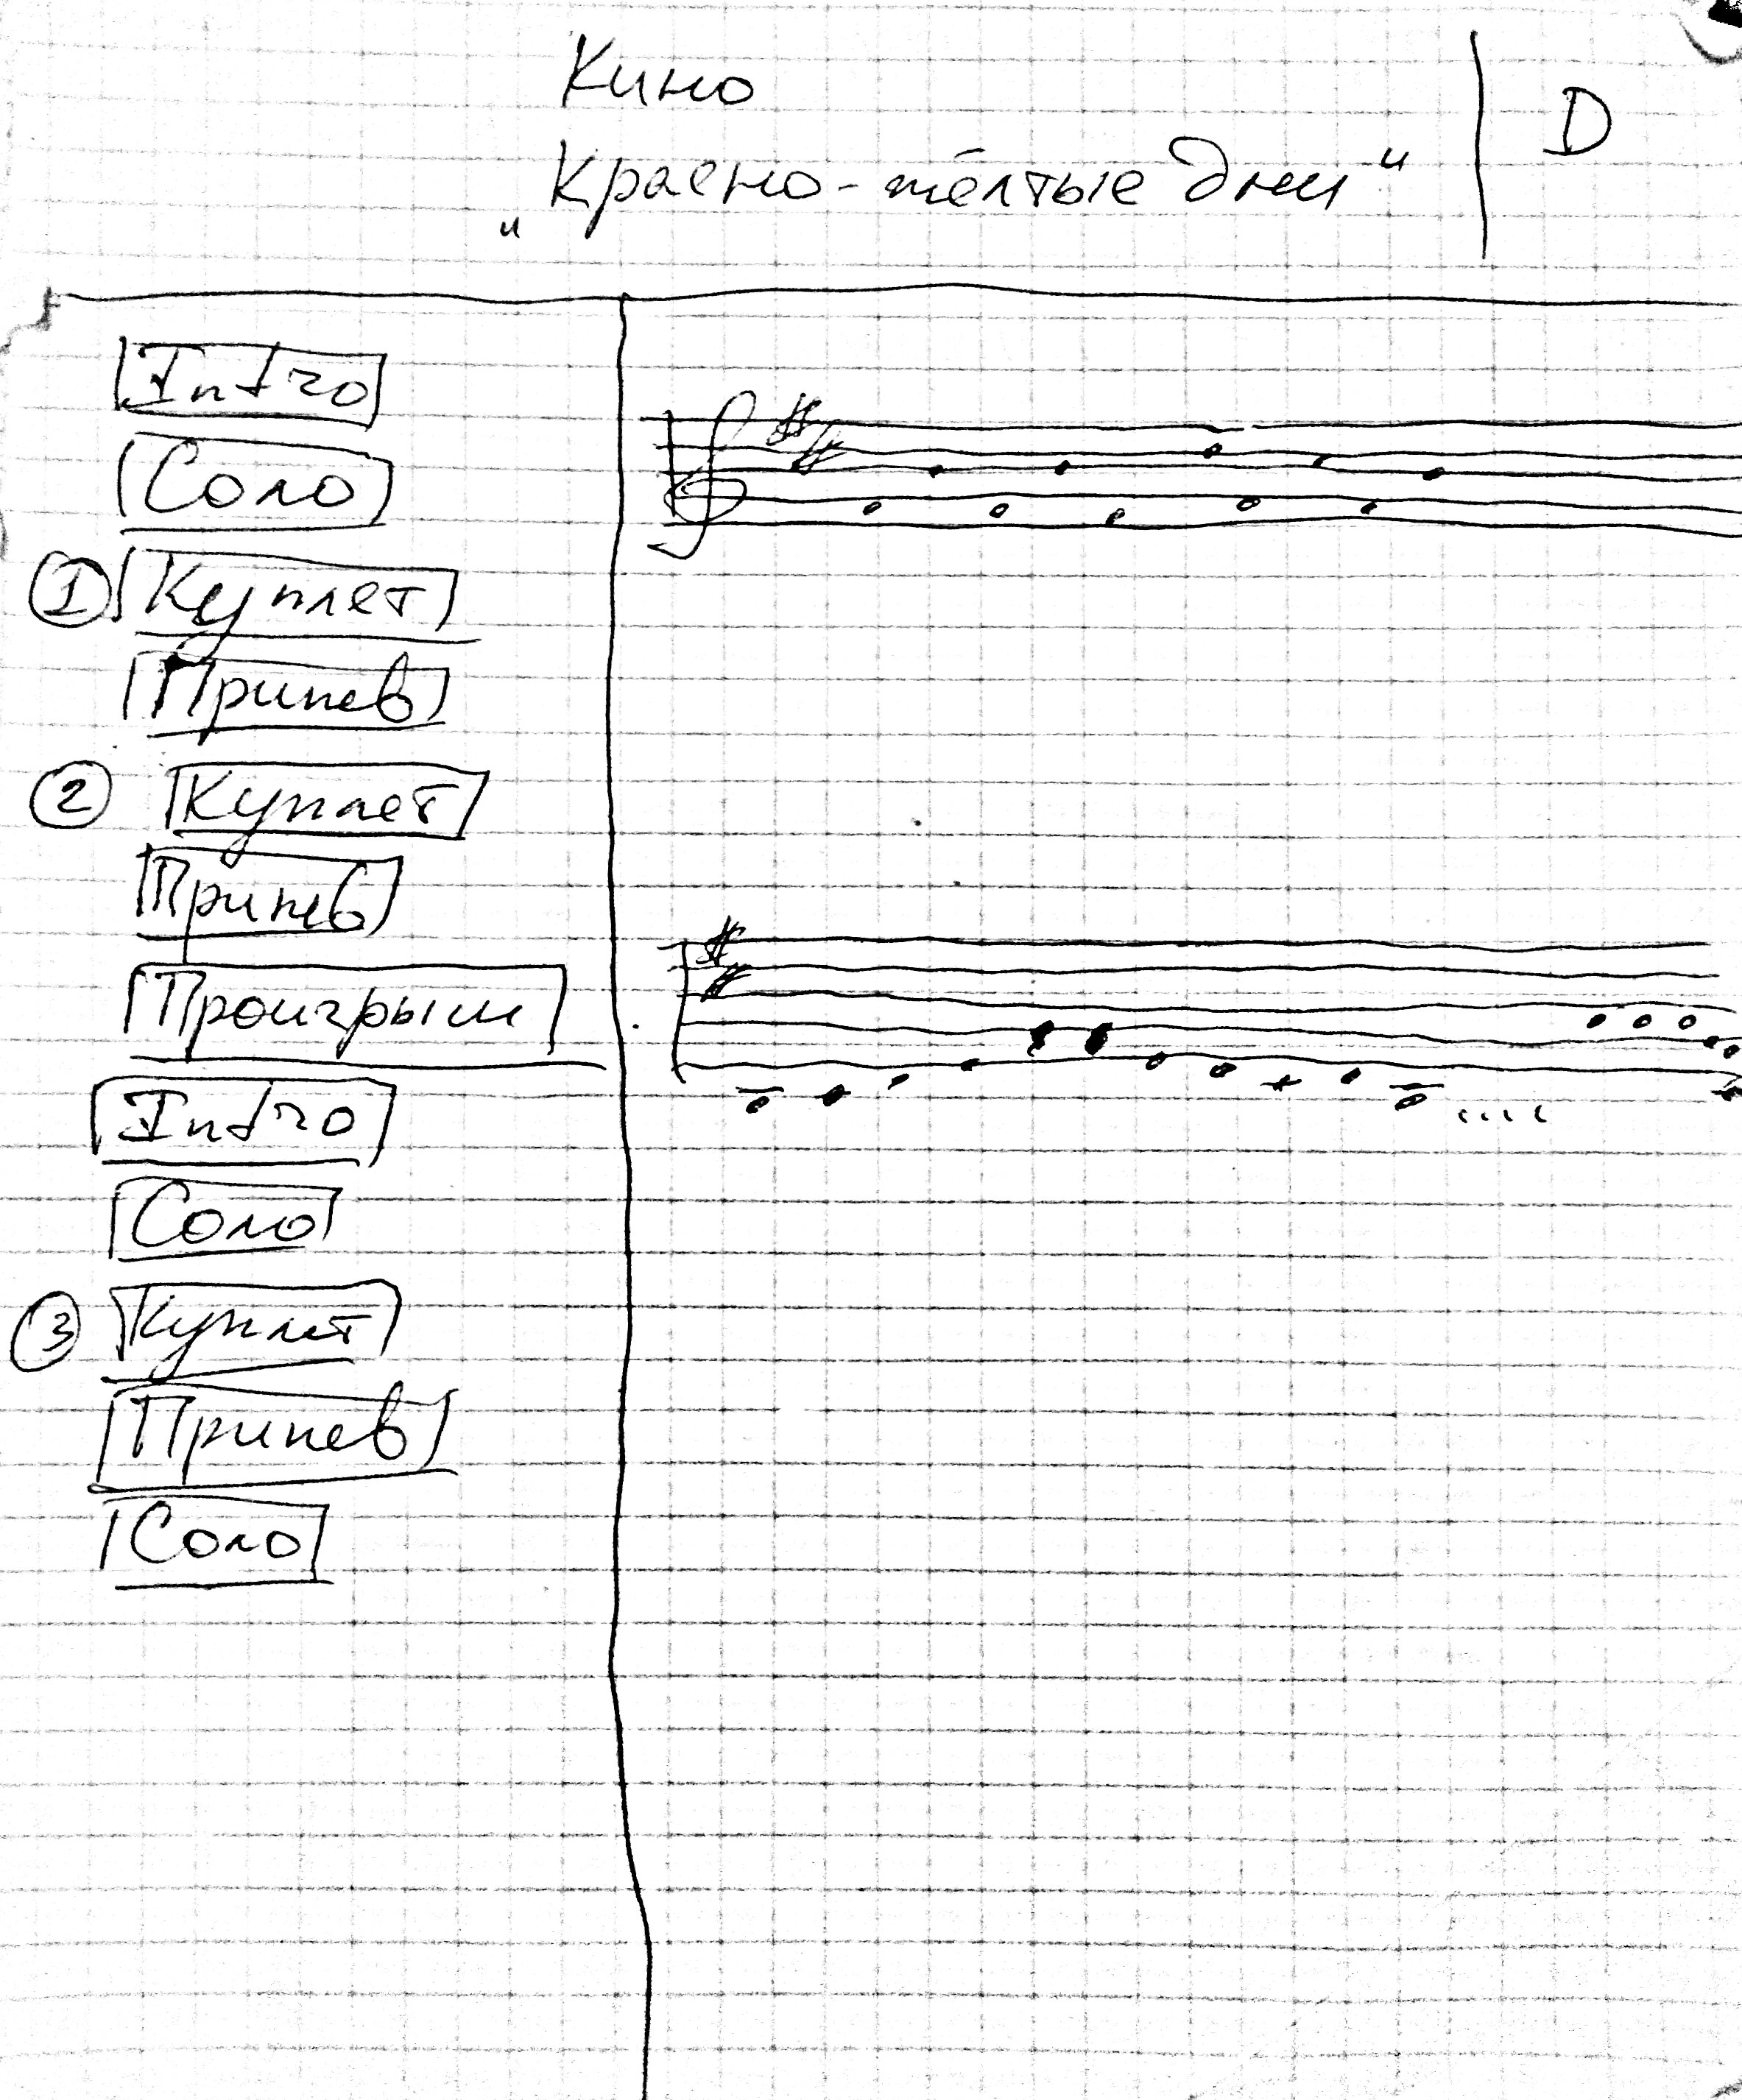 Кино
"Красно-жёлтые дни"
D
Intro
Соло
1 Куплет
Припев
2 Куплет
Припев
Проигрыш
Intro
Соло
3 Куплет
Припев
Соло